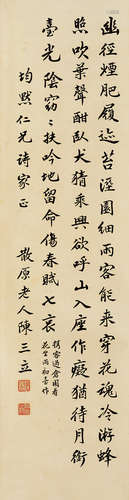 幽徑煙肥履迹苔涇園細雨客能來穿花魂冷游蜂
照吹葉聲酣臥犬猜乘興欲呼山入座作癡猶待月銜
臺光陰竊〻扶吟地留命傷春賦七哀
園看
花坐雨
作
均默仁兄詩家正
散原老人陳三立